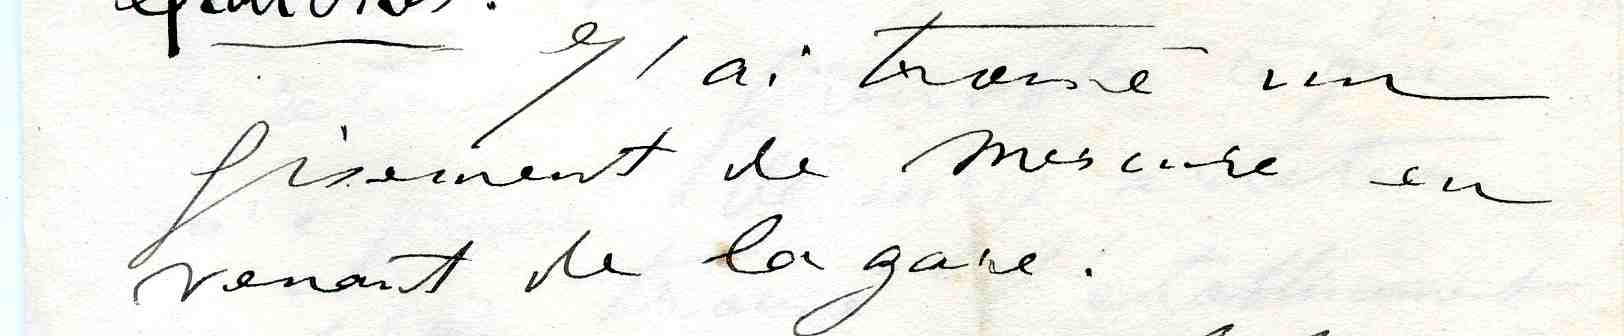 J'ai trouvé un
gisement de mercure en
venant de la gare.